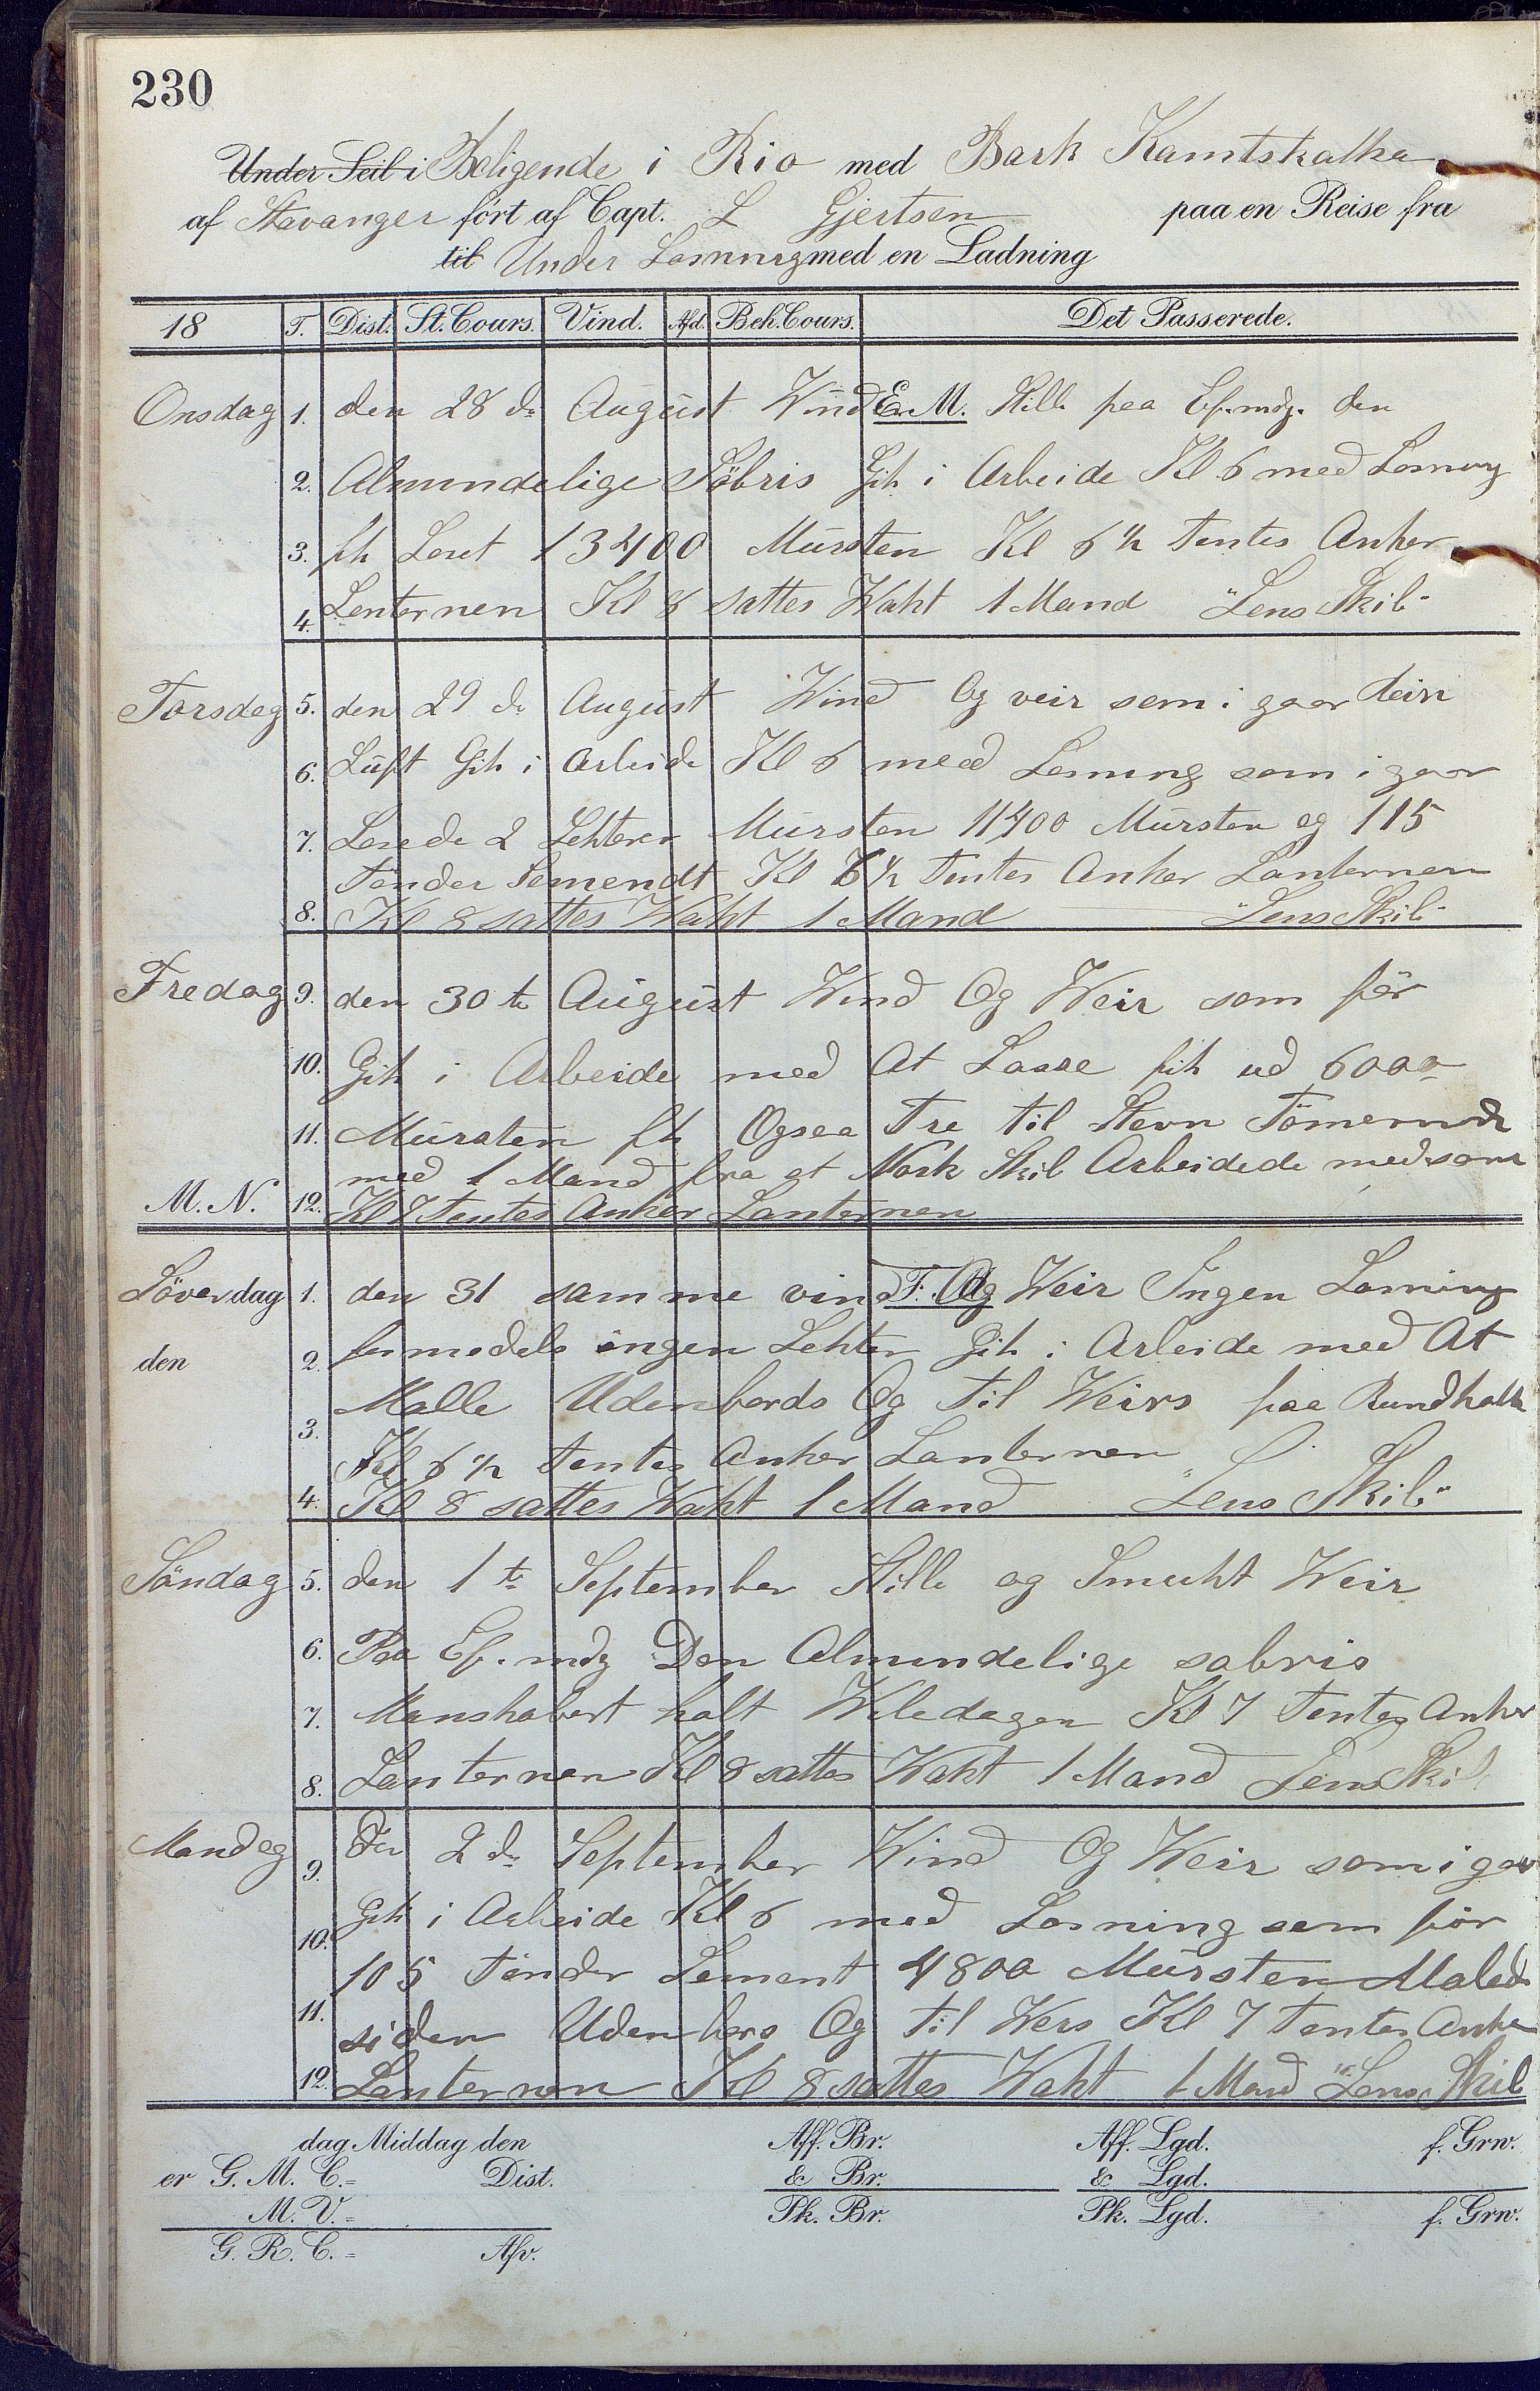 230
Under Seil i Beligende i Rio med Bark Kamtskatka
af Stavanger fört af Capt. L Gjertsen paa en Reise fra
til Under Losnung med en Ladning
18 T. Dist. St. Cours. Vind. Afd. Beh. Cours. Det Passerede.
Onsdag 1. den 28 de August Wind E. M. Stille paa Ef.mdg. den
2. Almundelige Söbris Gik i Arbeide Kl 6 med Losnung
3. fik Loset 13400 Mürsten Kl 6 1/2 Tentes Anker
4. Lenternen Kl 8 sattes Waht 1 Mand "Lens Skib"
Torsdag 5. den 29 de August Wind Og veir som i gaar
6. Lüft Gik i Arbeide Kl 6 med Losning som i gaar
7. Losede 2 Lehterer Mürsten 11400 Mürsten og 115
Tönder Sement Kl 6 1/2 Tentes Anker Lanternen
8. Kl 8 sattes Waht 1 Mand "Lens Skib"
Fredag 9. den 30 te August Wind Og Weir som för
10. Gik i Arbeide med At Losse fik ud 6000
11. Mürsten fik Ogsaa Tre til Stevn Tömernde
med 1 Mand fra et Norsk Skib Arbeidede medsom
M. N. 12. Kl 7 Tentes Anker Lanternen
Löverdag 1. den 31 samme vind F. M. Og Weir Ingen Losning
den 2. formedels ingen Lehter Gik i Arbeide med At
Malle Udenbords Og til Weirs paa Rundholt
3. Kl 6 1/2 tentes Anker Lanternen
4. Kl 8 sattes Waht 1 Mand "Lens Skib"
Söndag 5. den 1 te September Stille og Smukt Weir
6. Paa Ef.mdg Den Almundelige sobris
7. Manskabert halt Wiledagen Kl 7 Tentes Anker
8. Lanternen Kl 8 sattes Waht 1 Mand Lens Skib
Mandag 9. den 2 de September Wind Og Weir som i gaar
10. Gik i Arbeide Kl 6 med Losning som för
105 Tönder Sement 4800 Mürsten Malede
11. siden Udenbors Og til Weirs Kl 7 Tentes Anker
12. Lanternen Kl 8 sattes Waht 1 Mand "Lens Skib
dag Middag den Aff. Br. Aff. Lgd. f. Grw.
er G. M. C.= Dist. & Br. & Lgd.
M. V.= Pk. Br. Pk. Lgd. f. Grw.
G. R. C.= Afv.